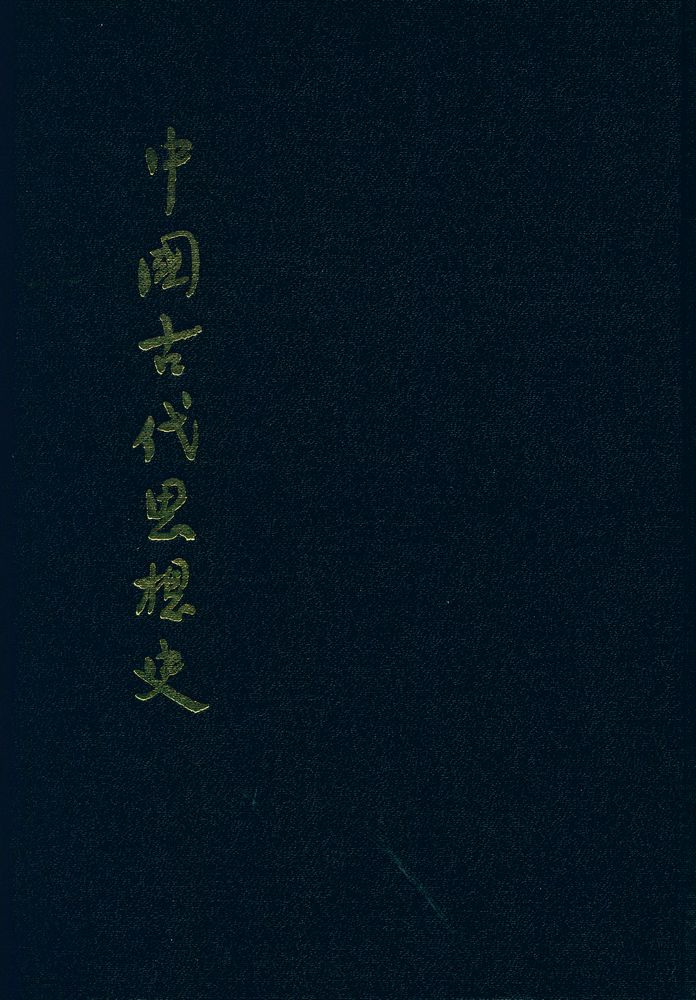 中國古代思想史